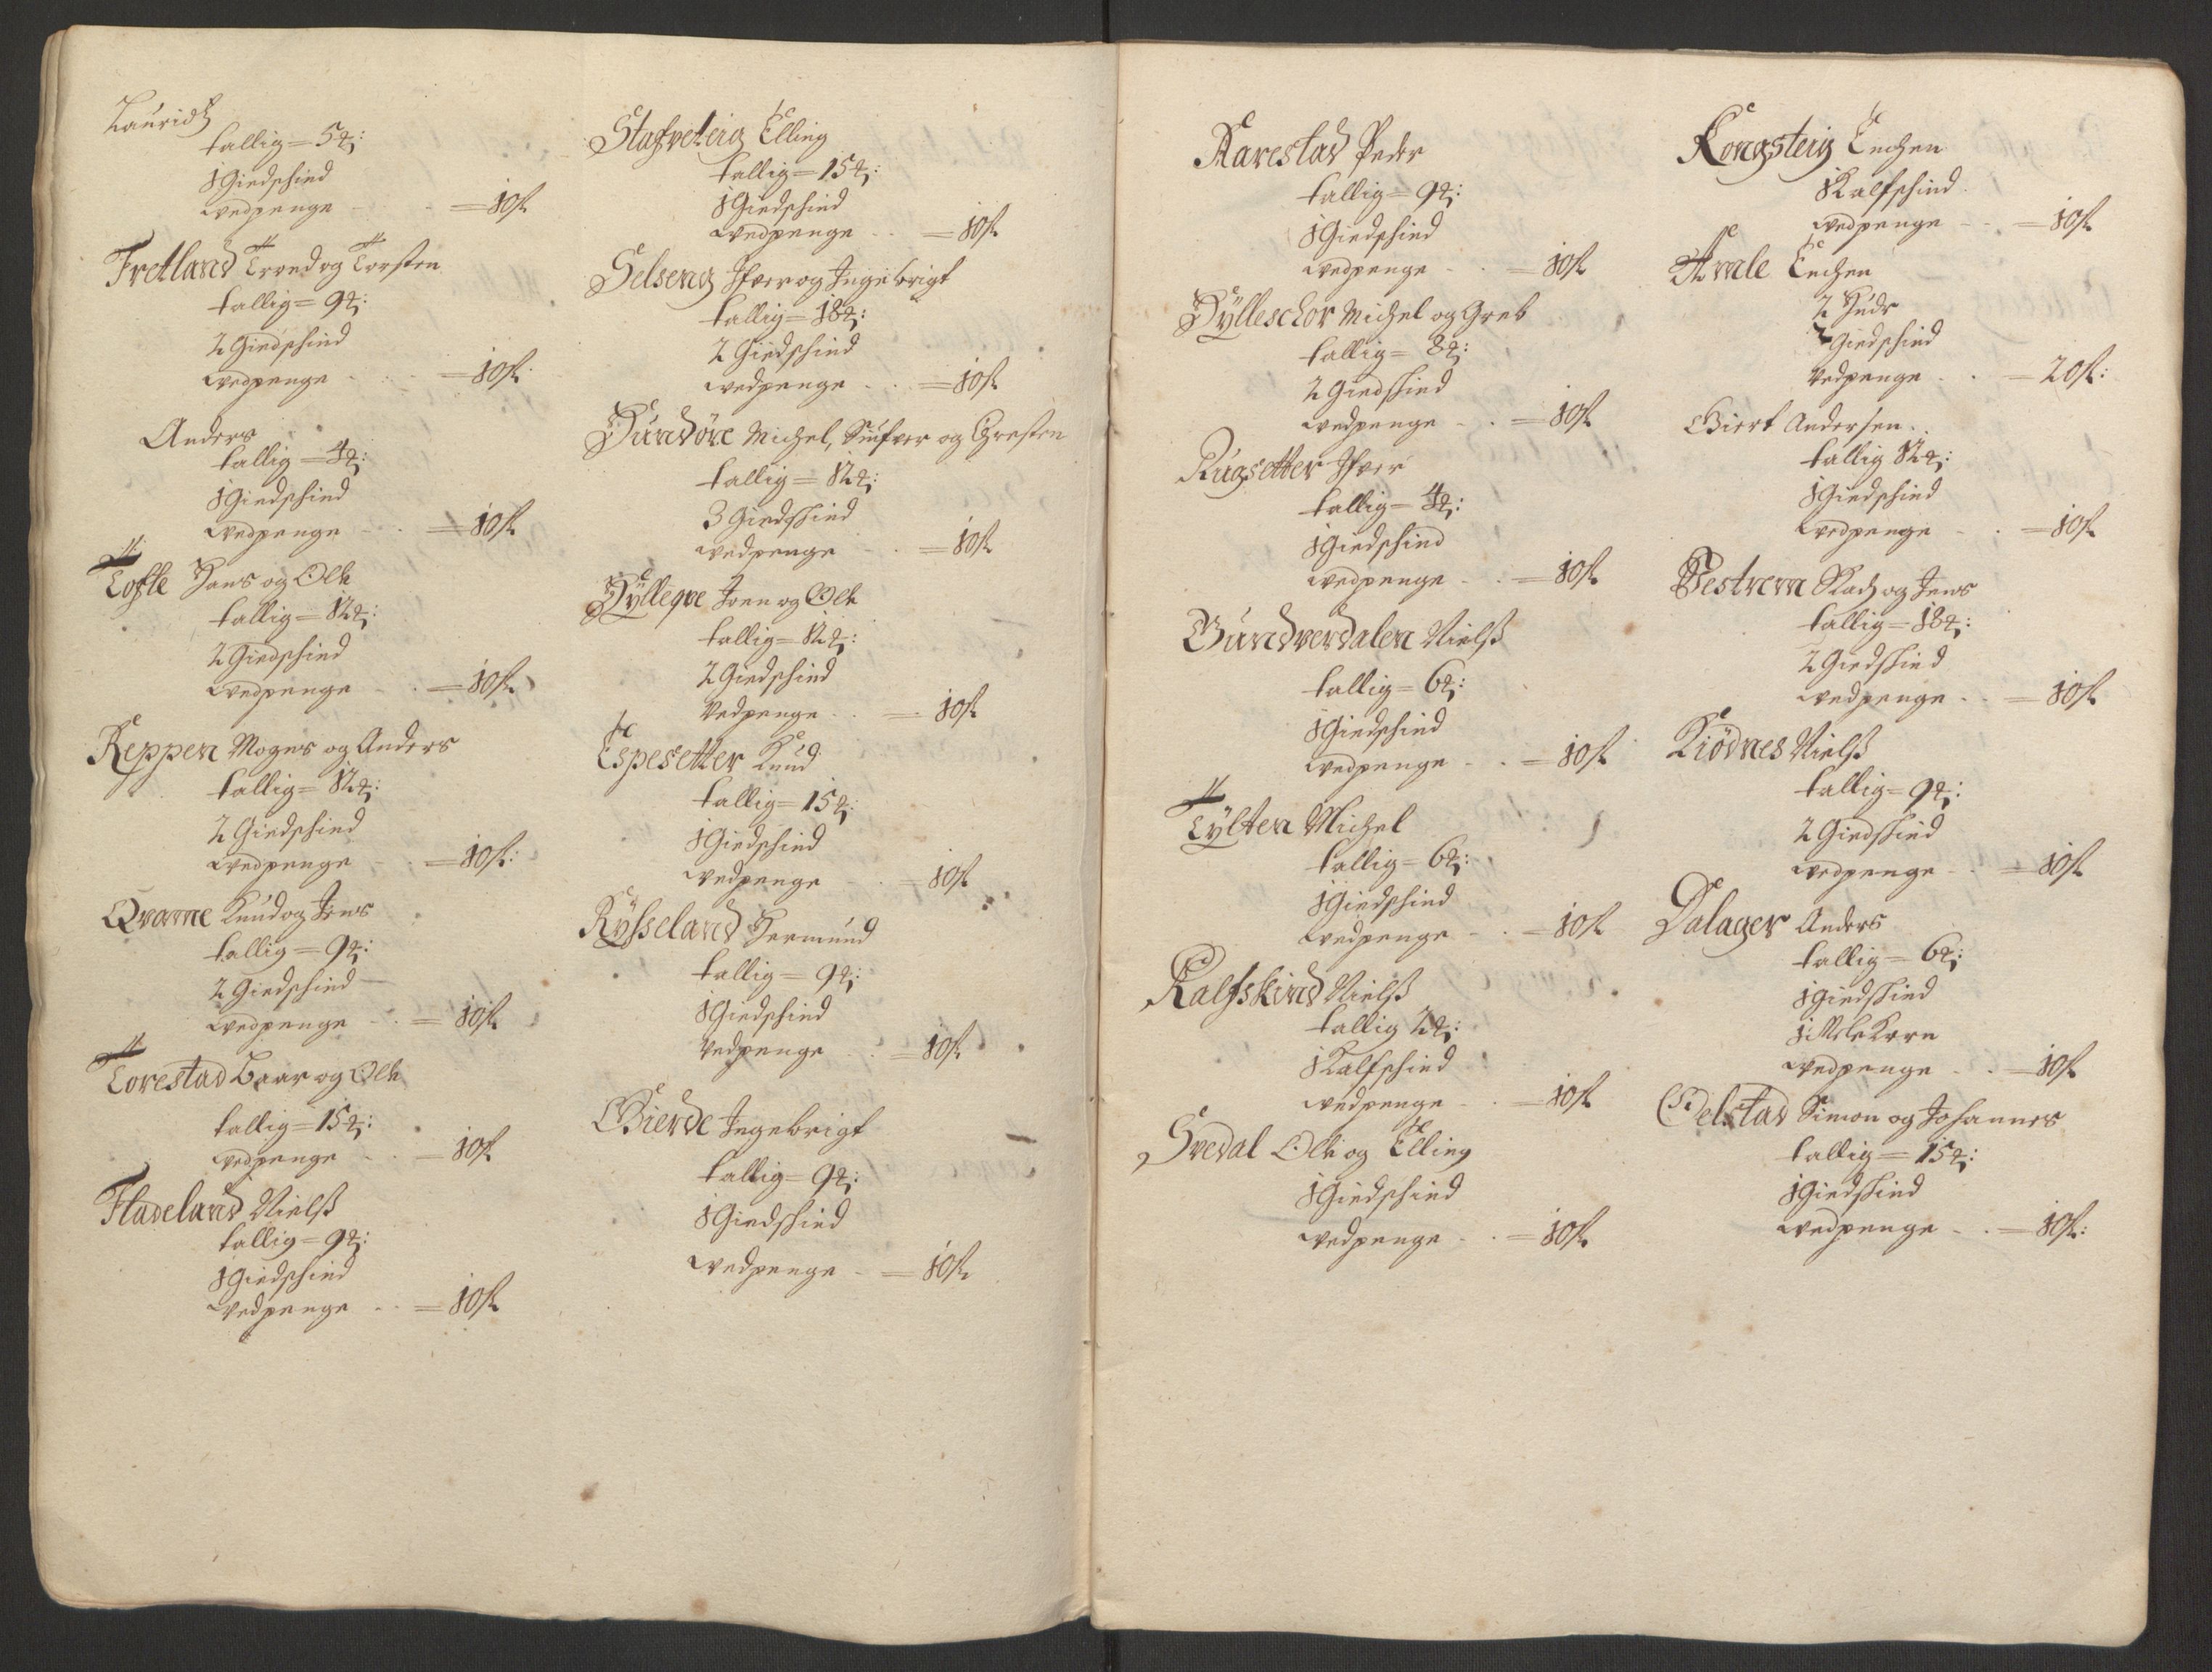 Lauridz
tallig = 5 ℔:
1 Giedschind
wedpenge - - = 10 ß
Fretland Trond og Torsten
tallig = 9 ℔:
2 Giedschind
wedpenge - - = 10 ß
Anders
tallig = 4 ℔:
1 Giedschind
wedpenge - - = 10 ß
Tofte Hans og Ole
tallig = 12 ℔:
2 Giedschind
wedpenge - - = 10 ß
Keppen Mogns og Anders
tallig = 12 ℔:
2 Giedschind
wedpenge - - = 10 ß:
Qvame Knud og Jens
tallig = 9 ℔:
2 Giedschind
wedpenge - - = 10 ß
Torestad Baar og Ole
tallig = 15 ℔:
wedpenge - - = 10 ß
Fladeland Nielß
tallig = 9 ℔:
1 Giedschind
wedpenge - - = 10 ß
Stafveteig Elling
tallig = 15 ℔:
1 Giedschind
wedpenge - - = 10 ß
Selseng Ifver og Ingebrigt
tallig = 18 ℔:
2 Giedschind
wedpenge - - = 10 ß
Hundøre Michel, Siufver og Chresten
tallig = 12 ℔:
3 Giedschind
wedpenge - - = 10 ß
Hylleqve Joen og Ole
tallig = 12 ℔:
2 Giedschind
Vedpenge - - = 10 ß
Espesetter Knud
tallig = 15 ℔:
1 Giedschind
wedpenge - = 10 ß
Rysseland Hermund
tallig = 9 ℔:
1 Giedschind
Vedpenge - - = 10 ß
Gierde Ingebrigt
tallig = 9 ℔:
1 Giedschind
wedpenge - = 10 ß
Aarestad Peder
tallig = 9 ℔:
1 Giedschind
wedpenge - - = 10 ß
Hylleschor Michel og Greb
tallig = 8 ℔:
2 Giedschind
wedpenge - - = 10 ß
Rugsetter Ifver
tallig = 4 ℔:
1 Giedschind
wedpenge - - = 10 ß
Gundverdalen Nielß
tallig = 6 ℔:
1 Giedschind
wedpenge - - = 10 ß
Tylten Michel
tallig = 6 ℔:
1 Giedschind
wedpenge - - = 10 ß
Kalfskind Nielß
tallig 2 ℔:
1 Kalfschind
wedpenge - - = 10 ß
Svedal Ole og Elling
1 Giedschind
wedpenge - - = 10 ß
Kongsteig Enchen
1 Kalfschind
wedpenge - - = 10 ß
Amle Enchen
2 Huder
2 Giedschind
Vedpenge - - = 20 ß:
Giert Andersen
tallig 12 ℔:
1 Giedschind
wedpenge - - = 10 ß
Vestrem og Jens
tallig = 18 ℔:
2 Giedschind
wedpenge - - = 10 ß
Kiødnes Nielß
tallig = 9 ℔:
2 Giedschind
wedpenge - - = 10 ß
Dalager Anders
tallig = 6 ℔:
1 Giedschind
1 Mele Korn
wedpenge - - = 10 ß
Edelstad Simon og Johannes
tallig = 15 ℔:
1 Giedschind
wedpenge - - = 10 ß: